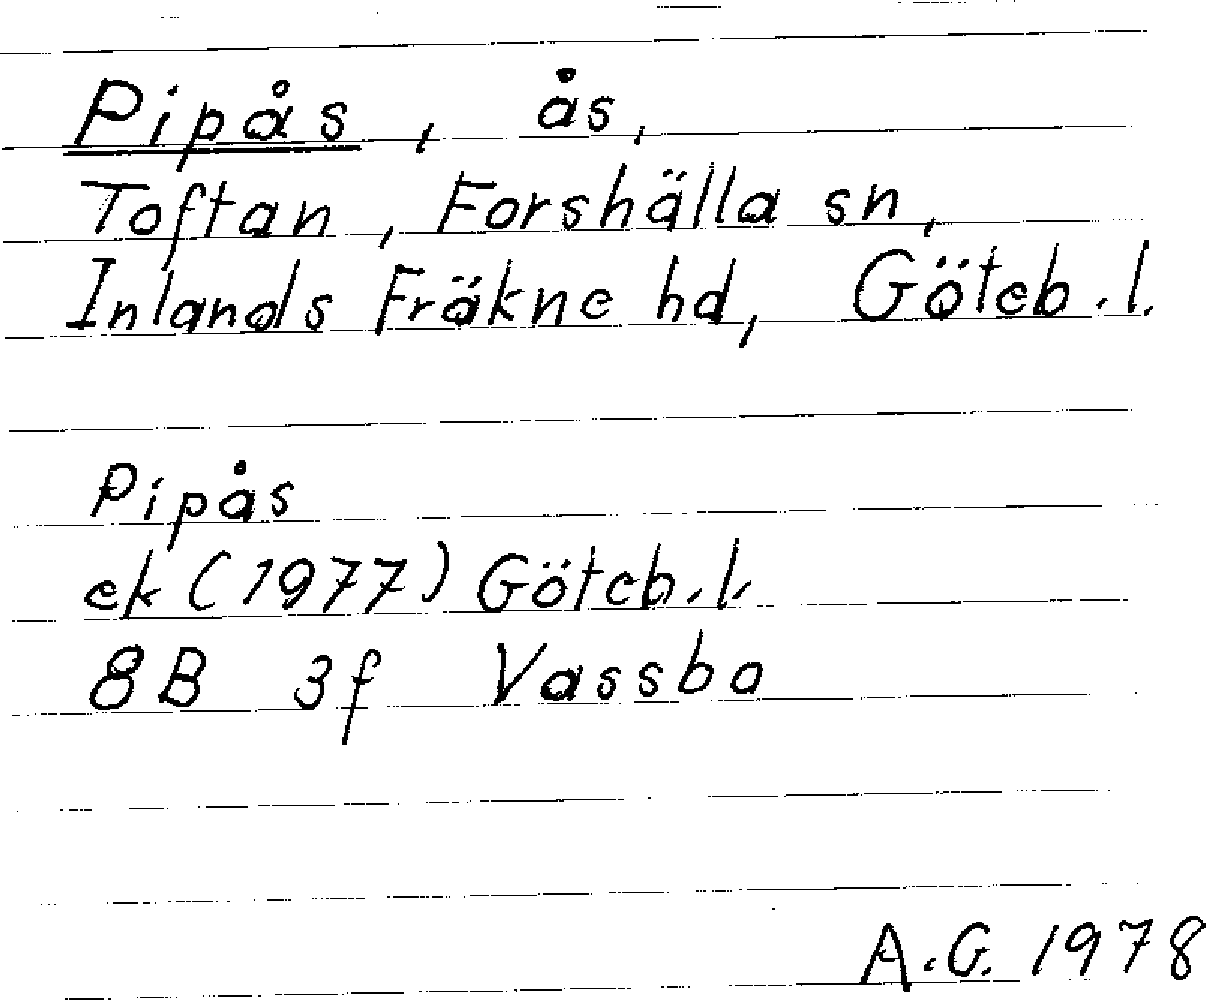 Pipås, ås,
Toftan, Forshälla sn,
Inlands Fräkne hd, Göteb.l.
Pipås
ek (1977) Göteb.l.
8B 3f Vassbo
A.G. 1978